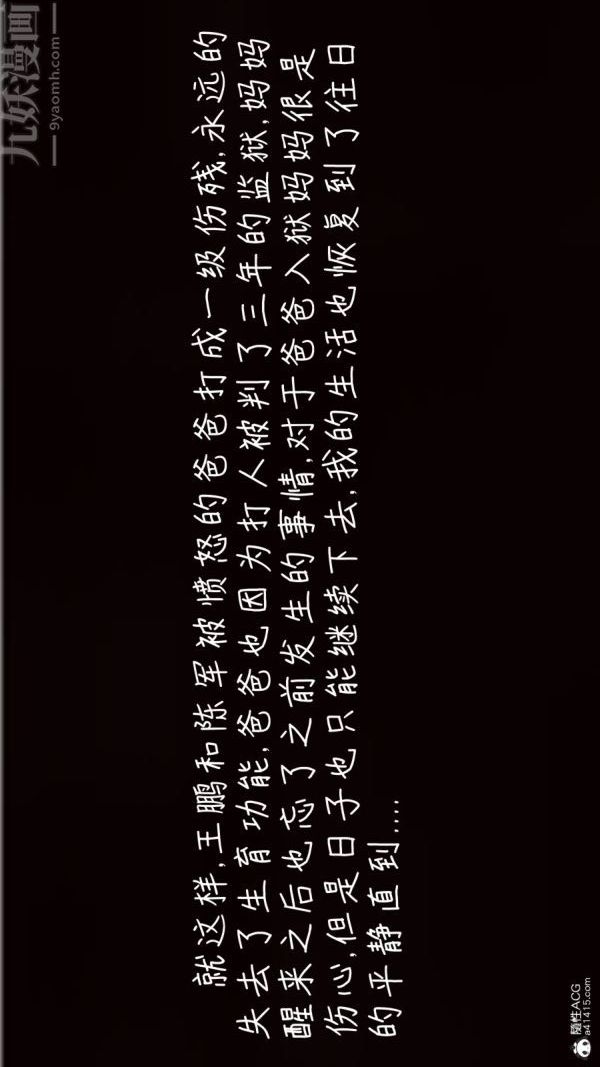 就这样,王鹏和陈军被愤怒的爸爸打成一级伤残,永远的
失去了生育功能,爸爸也因为打人被判了三年的监狱,妈妈
醒来之后也忘了之前发生的事情,对于爸爸入狱妈妈很是
伤心,但是日子也只能继续下去,我的生活也恢复到了往日
的平静直到.....
隨性ACG
a41415.com
九妖漫画
9yaomh.com